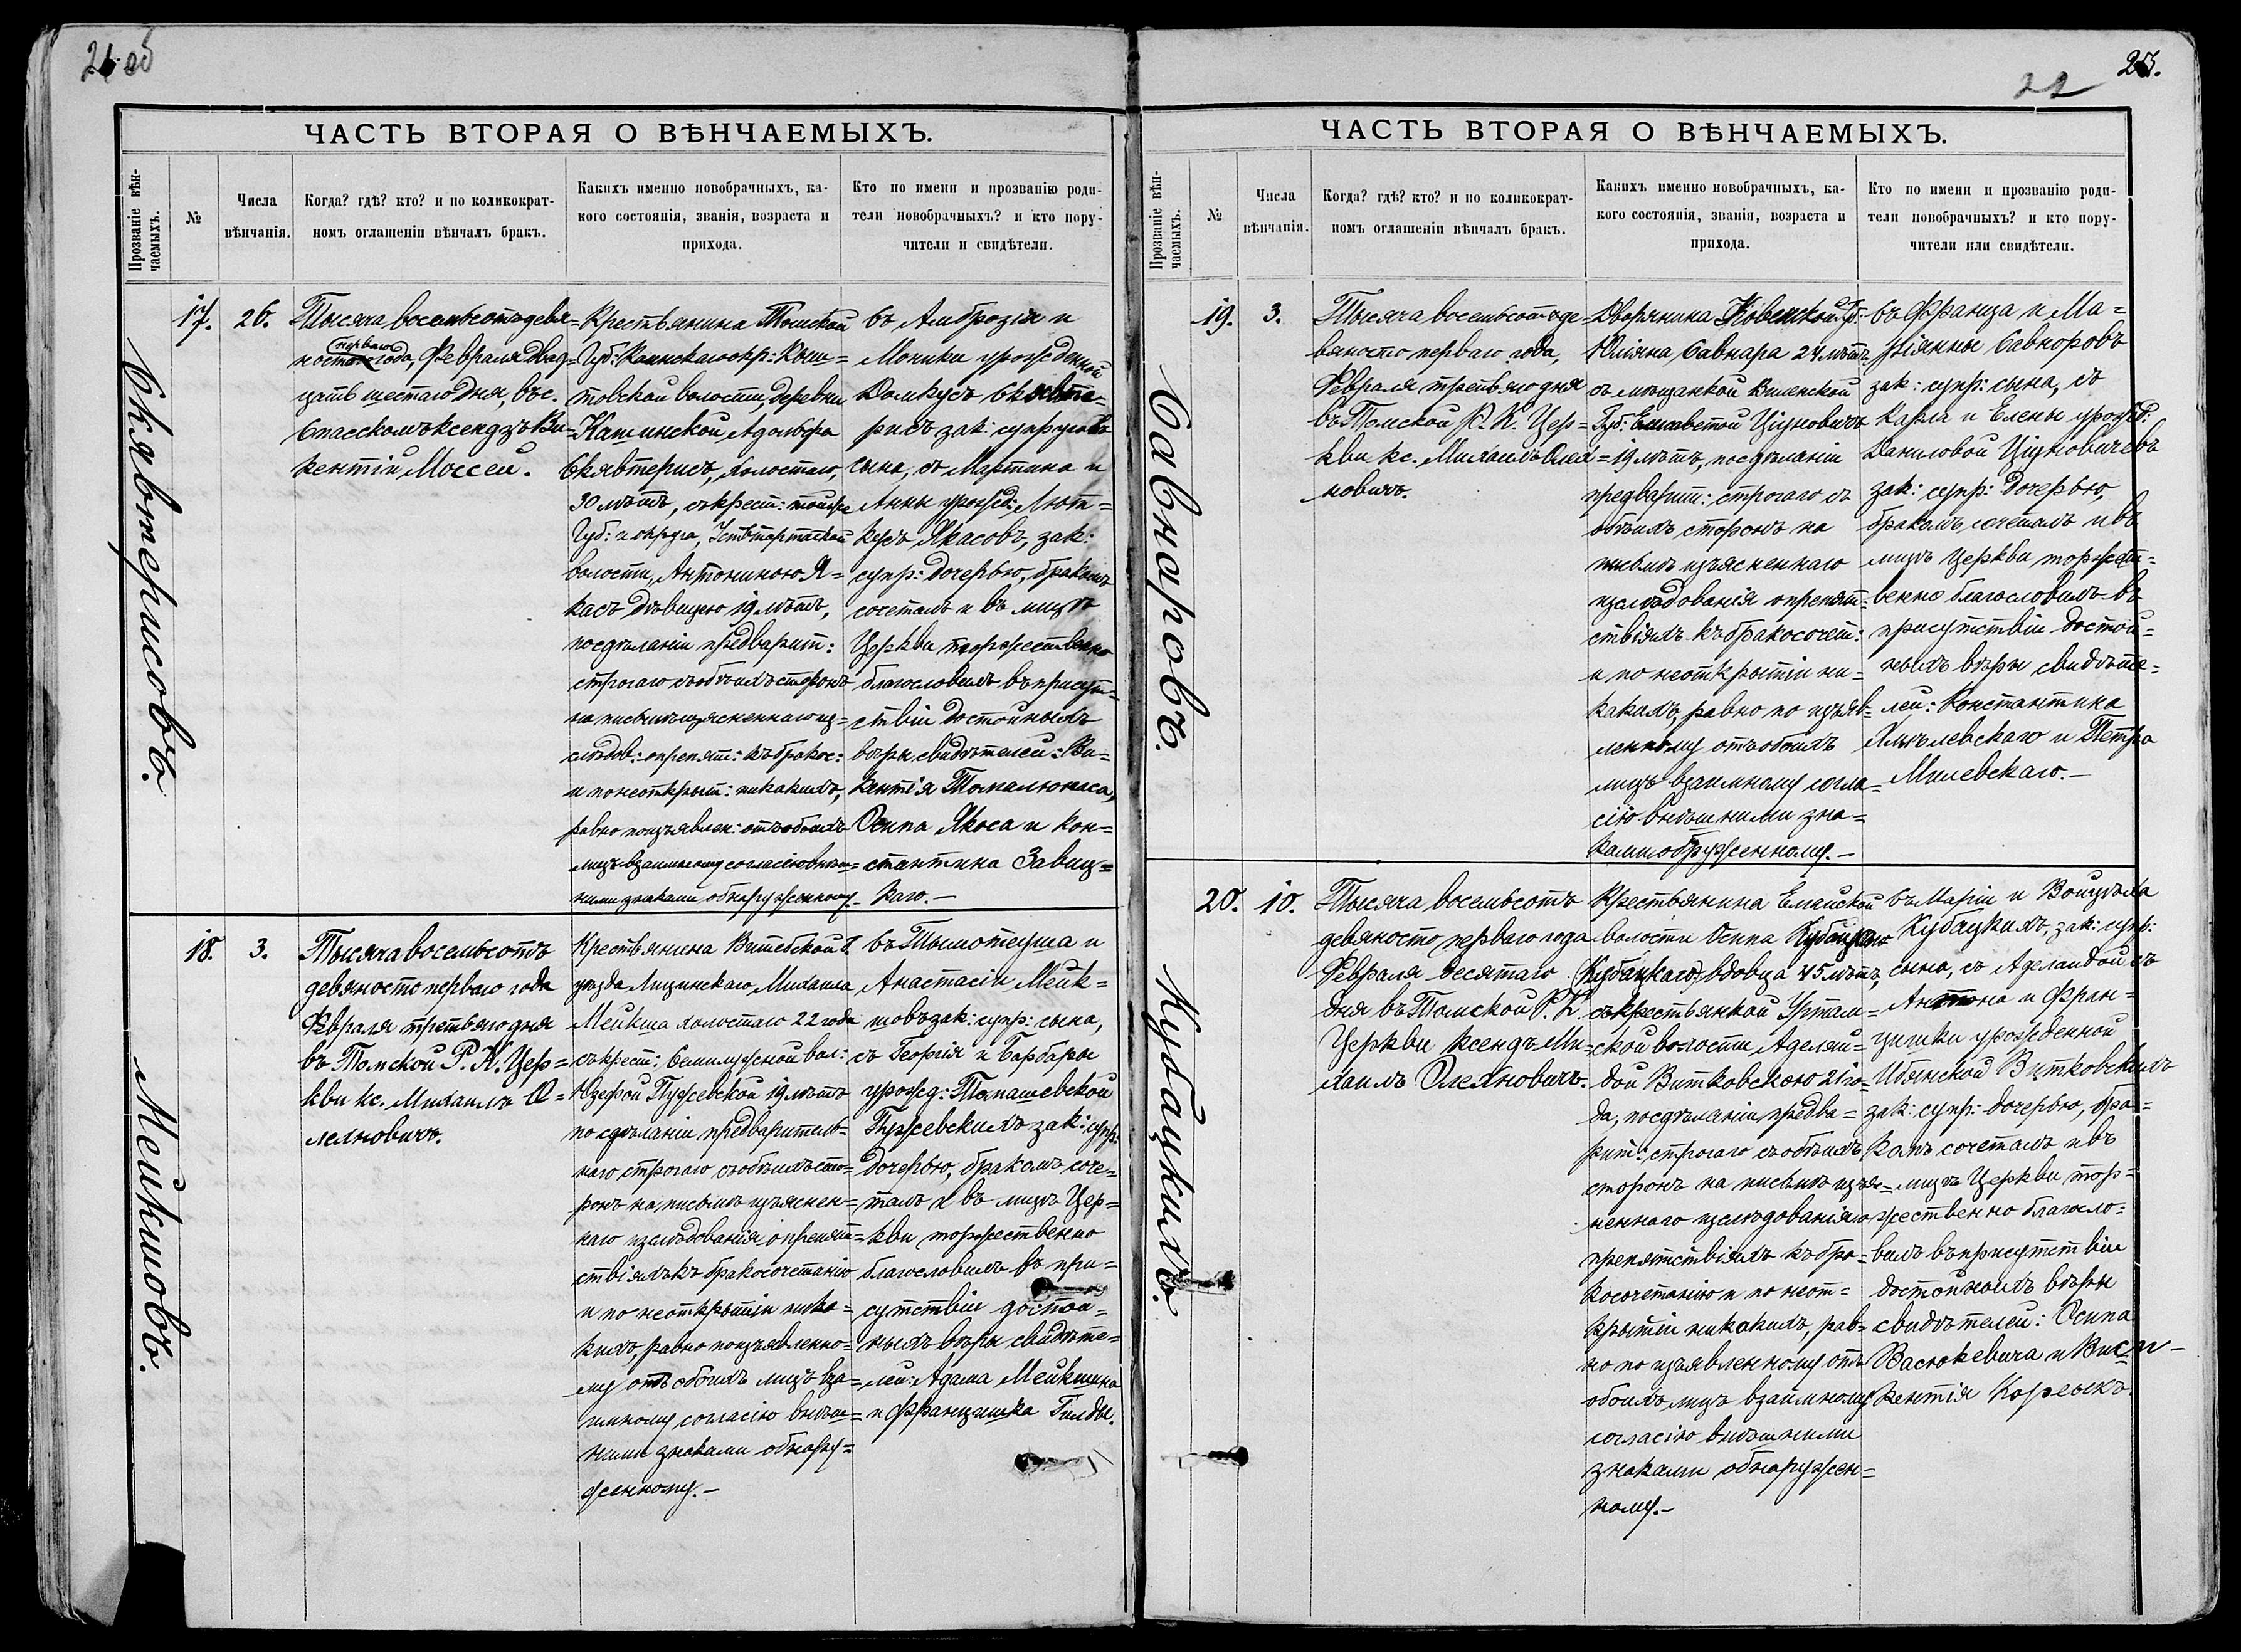 21 об
ЧАСТЬ ВТОРАЯ О ВѢНЧАЕМЫХЪ.
Прозваніе вѣн-
чаемыхъ.
№
Числа
вѣнчанія.
Когда? гдѣ? кто? и по коликократ-
номъ оглашеніи вѣнчалъ бракъ.
Какихъ именно новобрачныхъ, ка-
кого состоянія, званія, возраста и
прихода.
Кто по имени и прозванію роди-
тели новобрачныхъ? и кто пору-
чители и свидѣтели.
Скявтерисовъ.
17.
26.
Тысяча восемьсотъ девя-
ностопервого года, Февраля двад-
цать шестаго дня, въ с.
Спасскомъ ксендзъ Ви-
кентій Моссей.
Крестьянина Томской
Губ: Каинскаго окр: Кыш-
товской волости, деревни
Кашинской Адольфа
Скявтерисъ, холостаго,
30 лѣтъ, съ крест: тойже
Губ: и округа, Устьтартаской
волости, Антониною Я-
касъ дѣвицею 19 лѣтъ,
по сдѣланіи предварит:
строгаго съ обѣихъ сторонъ
на письмѣ изъясненнаго из-
слѣдов: о препят: къ бракос:
и по неоткрыт: никакихъ,
равно по изъявлен: отъ обоихъ
лицъ взаимному согласію внѣш-
ними знаками обнаруженному.
съ Амброзія и
Моники урожденной
Домкусъ Скявте-
рисъ зак: супруговъ
сына, съ Мартина и
Анны урожд: Лют-
кусъ Якасовъ, зак:
супр: дочерью, бракомъ
сочеталъ и въ лицѣ
Церкви торжественно
благословилъ въ присут-
ствіи достойныхъ
вѣры свидѣтелей: Ви-
кентія Томалюнаса,
Осипа Якоса и Кон-
стантина Завиц-
каго.—
Мейкшовъ.
18.
3.
Тысяча восемьсотъ
девяносто перваго года
Февраля третьяго дня
въ Томской Р. К. Цер-
кви кс. Михаилъ О-
леxновичъ.
Крестьянина Витебской Г.
уѣзда Люцинскаго, Михаила
Мейкша холостаго 22 года
съ крест: Семилужной вол:
Юзефой Гужевской 19 лѣтъ
по сдѣланіи предваритель-
наго строгаго съ обѣихъ сто-
ронъ на письмѣ изъяснен-
наго изслѣдованія о препят-
ствіяхъ къ бракосочетанію
и по неоткрытіи ника-
кихъ, равно по изъявленно-
му отъ обоихъ лицъ вза-
имному согласію внѣш-
ними знаками обнару-
женному.—
съ Тимотеуша и
Анастасіи Мейк-
шовъ зак: супр: сына,
съ Георгія и Барбары
урожд: Томашевской
Гужевскихъ зак: супр:
дочерью, бракомъ соче-
талъ и въ лицѣ Цер-
кви торжественно
благословилъ въ при-
сутствіи достой-
ныхъ вѣры свидѣте-
лей: Адама Мейкшина
и Францишка Гилды.
22
23.
ЧАСТЬ ВТОРАЯ О ВѢНЧАЕМЫХЪ.
Прозваніе вѣн-
чаемыхъ.
№
Числа
вѣнчанія.
Когда? гдѣ? кто? и по коликократ-
номъ оглашеніи вѣнчалъ бракъ.
Какихъ именно новобрачныхъ, ка-
кого состоянія, званія, возраста и
прихода.
Кто по имени и прозванію роди-
тели новобрачныхъ? и кто пору-
чители или свидѣтели.
Савноровъ.
19.
3.
Тысяча восемьсотъ де-
вяносто перваго года,
Февраля третьяго дня
въ Томской Р. К. Цер-
кви кс. Михаилъ Олех-
новичъ.
Дворянина Ковенской Губ:
Юліяна Савнара 24 лѣтъ
съ мѣщанкой Виленской
Губ: Елисаветой Ціуновичъ
19 лѣтъ, по сдѣланіи
предварит: строгаго съ
обѣихъ сторонъ на
письмѣ изъясненнаго
изслѣдованія о препят-
ствіяхъ къ бракосочет:
и по неоткрытіи ни-
какихъ, равно по изъяв-
ленному отъ обоихъ
лицъ взаимному согла-
сію внѣшними зна-
ками обруженному.—
съ Франца и Ма-
ріянны Савноровъ
зак: супр: сына, съ
Карла и Елены урожд:
Даниловой Ціуновичевъ
зак: супр: дочерью,
бракомъ сочеталъ и въ
лицѣ Церкви торжест-
венно благословилъ въ
присутствіи достой-
ныхъ вѣры свидѣте-
лей: Константина
Ямелевскаго и Петра
Милевскаго.—
Кубацкихъ.
20.
10.
Тысяча восемьсотъ
девяносто перваго года
Февраля десятаго
дня въ Томской Р. К.
Церкви ксендъ Ми-
хаилъ Олехновичъ.
Крестьянина Елайской
волости Осипа Кубацкаго
(Кубацкаго) вдовца 45 лѣтъ,
съ крестьянкой Уртам-
ской волости Аделаи-
дой Витковскою 21 го-
да, по сдѣланіи предва-
рит: строгаго съ обѣихъ
сторонъ на письмѣ изъяс-
неннаго изслѣдованія о
препятствіяхъ къ бра-
косочетанію и по неот-
крытіи никакихъ, рав-
но по изъявленному отъ
обоихъ лицъ взаимному
согласію внѣшними
знаками обнаружен-
ному.—
съ Маріи и Войцѣха
Кубацкихъ, зак: супр:
сына, съ Аделаидой съ
Антона и Фран-
цишки урожденной
Витковскихъ
зак: супр: дочерью, бра-
комъ сочеталъ и въ
лицѣ Церкви тор-
жественно благосло-
вилъ въ присутствіи
достойныхъ вѣры
свидѣтелей: Осипа
Васюкевича и Ви-
кентія Кореькъ.